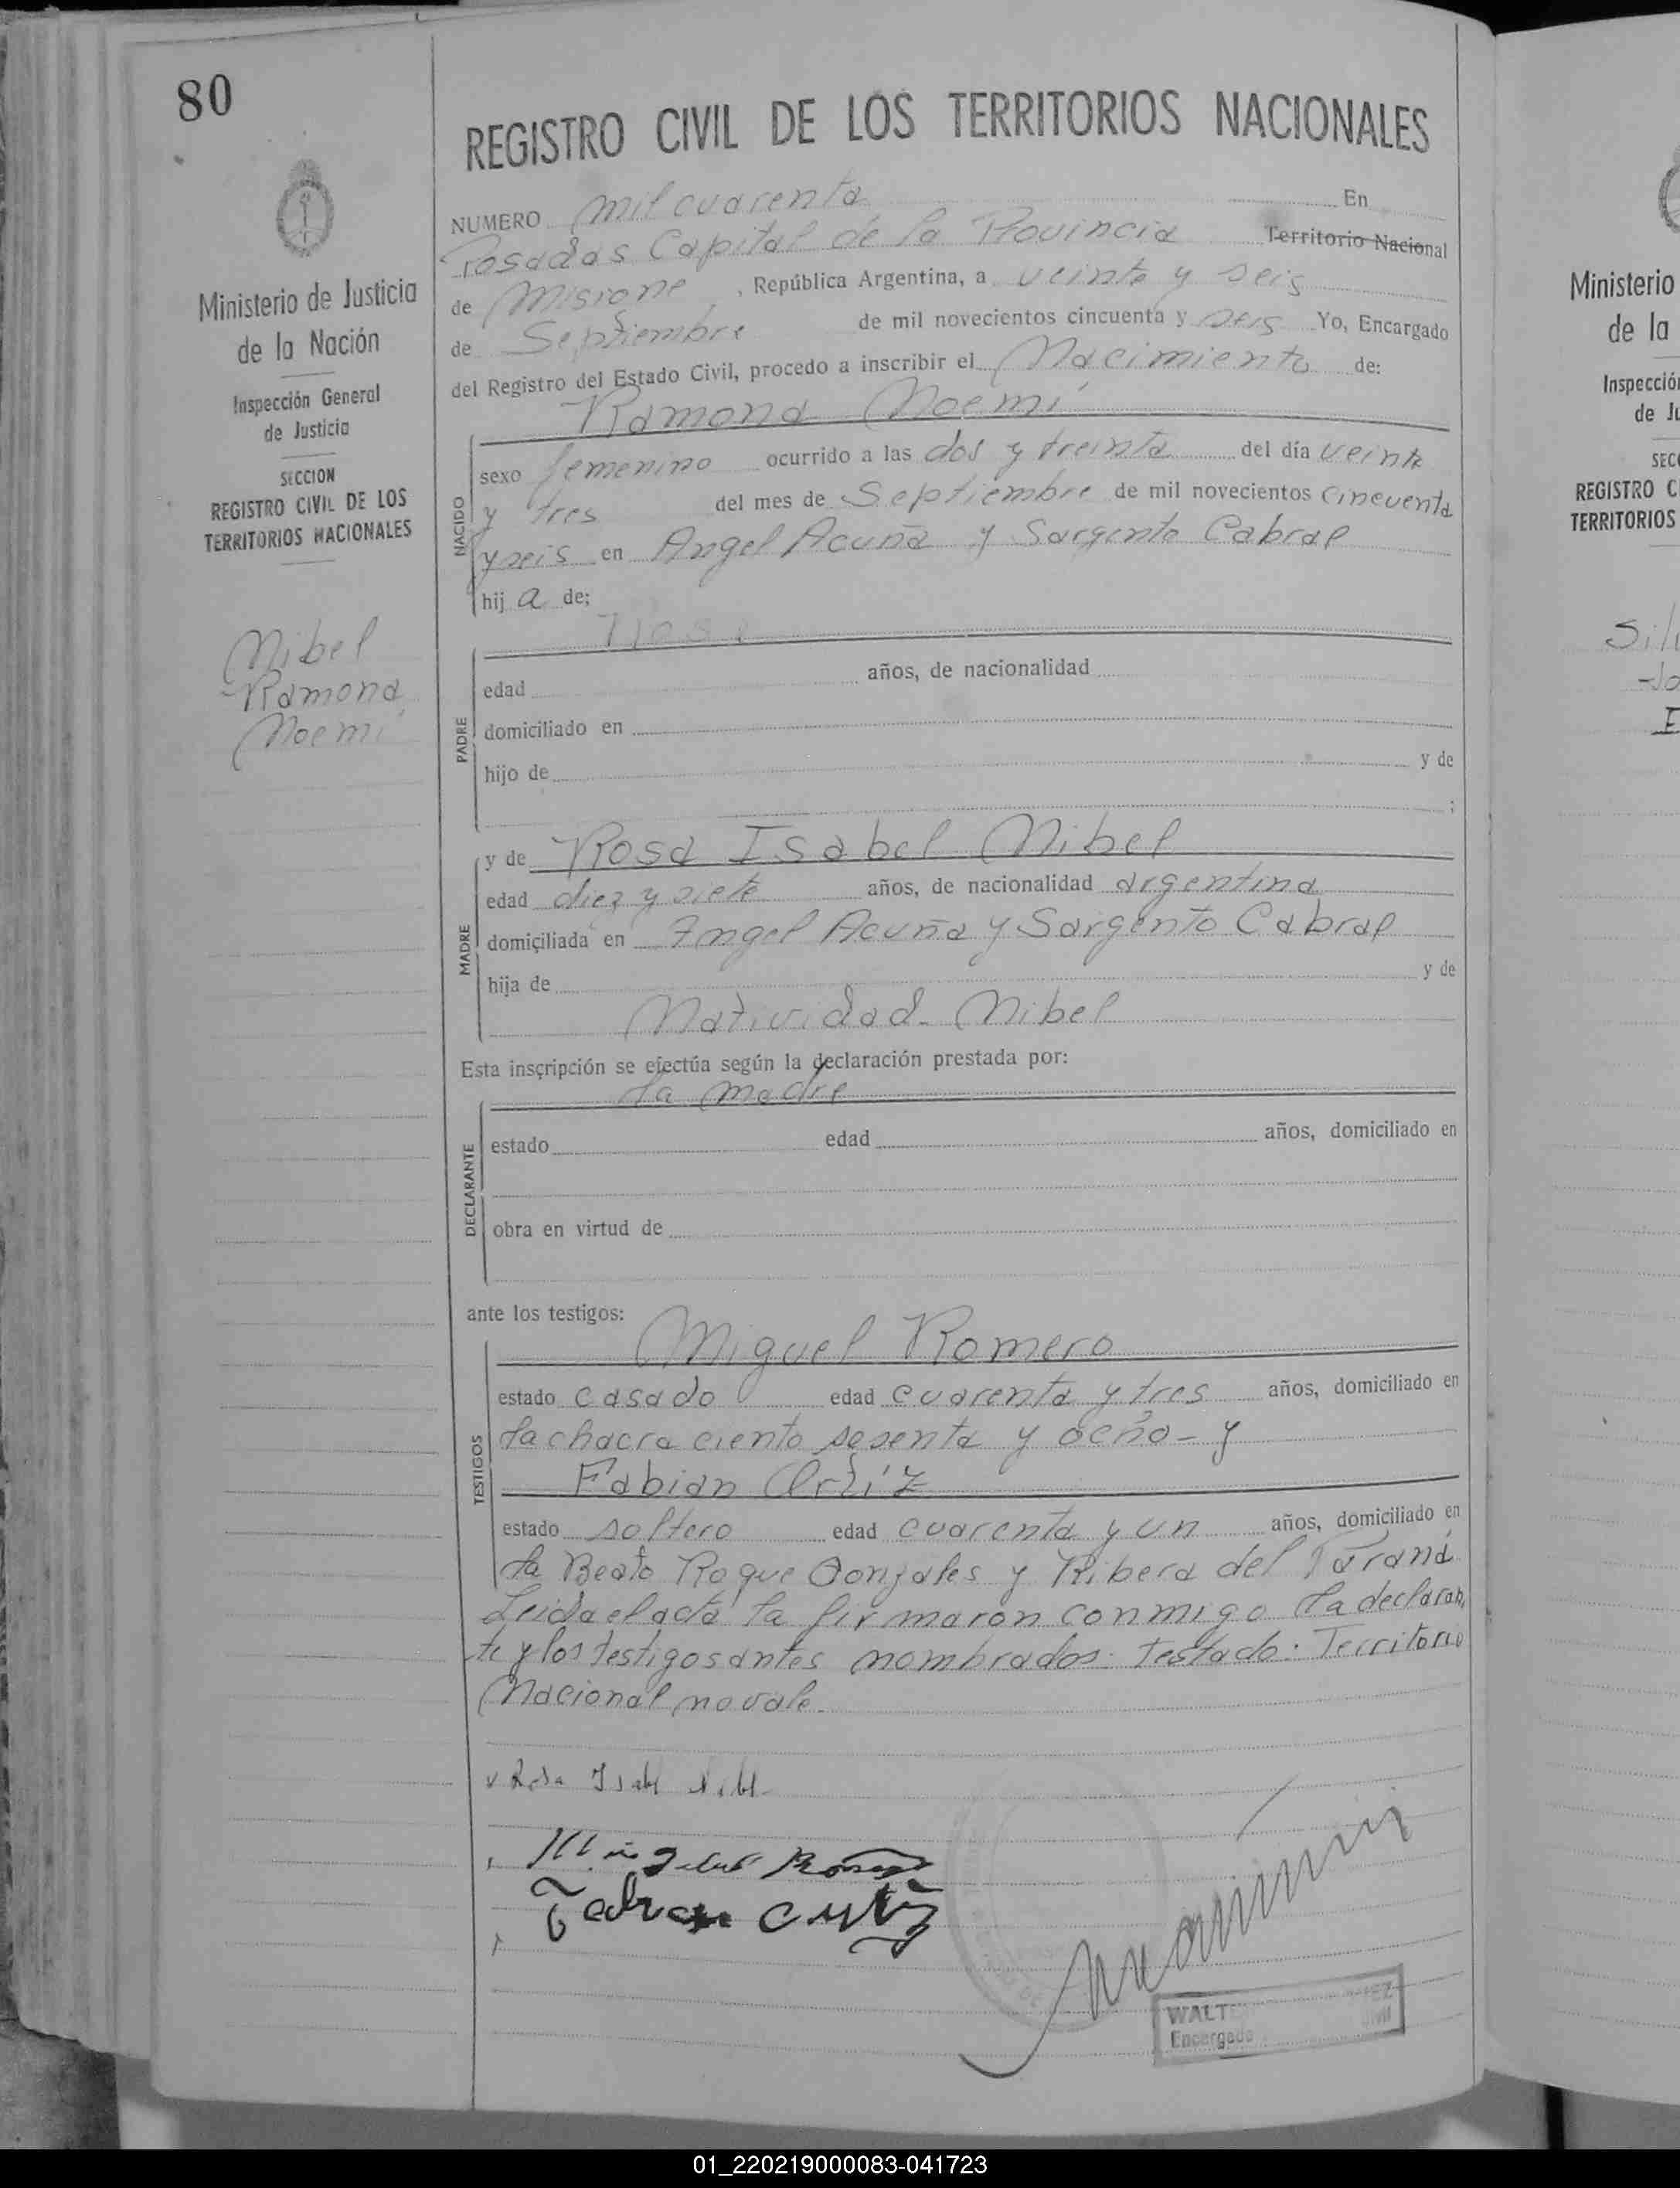 80
REGISTRO CIVIL DE LOS TERRITORIOS NACIONALES
NUMERO mil cuarenta En
Posadas Capital de la Provincia Territorio Nacional
de Misione , República Argentina, a veinte y seis
de Septiembre de mil novecientos cincuenta y seis Yo, Encargado
del Registro del Estado Civil, procedo a inscribir el Nacimiento de:
Ramona Noemí
NACIDO
sexo femenino ocurrido a las dos y treinta del día veinte
y tres del mes de Septiembre de mil novecientos cincuenta
y seis en Angel Acuña y Sargento Cabral
hija de;
PADRE
edad años, de nacionalidad
domiciliado en
hijo de y de
;
MADRE
y de Rosa Isabel Nibel
edad diez y siete años, de nacionalidad argentina
domiciliada en Angel Acuña y Sargento Cabral
hija de y de
Natividad Nibel
Esta inscripción se efectúa según la declaración prestada por:
la madre
DECLARANTE
estado edad años, domiciliado en
obra en virtud de
ante los testigos:
Miguel Romero
TESTIGOS
estado casado edad cuarenta y tres años, domiciliado en
la chacra ciento sesenta y ocho - y
Fabian Ortíz
estado soltero edad cuarenta y un años, domiciliado en
la Beato Roque Gonzales y Ribera del Paraná
Leida el acta la firmaron conmigo la declaran
te y los testigos antes nombrados. Testado: Territorio
Nacional no vale.
Rosa Isabel Nibel
Miguel Romero
Fabian Ortiz
WALT EZ
Encargado
Ministerio de Justicia
de la Nación
Inspección General
de Justicia
SECCION
REGISTRO CIVIL DE LOS
TERRITORIOS NACIONALES
Nibel
Ramona
Noemí
Ministerio
de la
Inspección
de Ju
SEC
REGISTRO C
TERRITORIOS
Sil
Jo
E
01_220219000083-041723